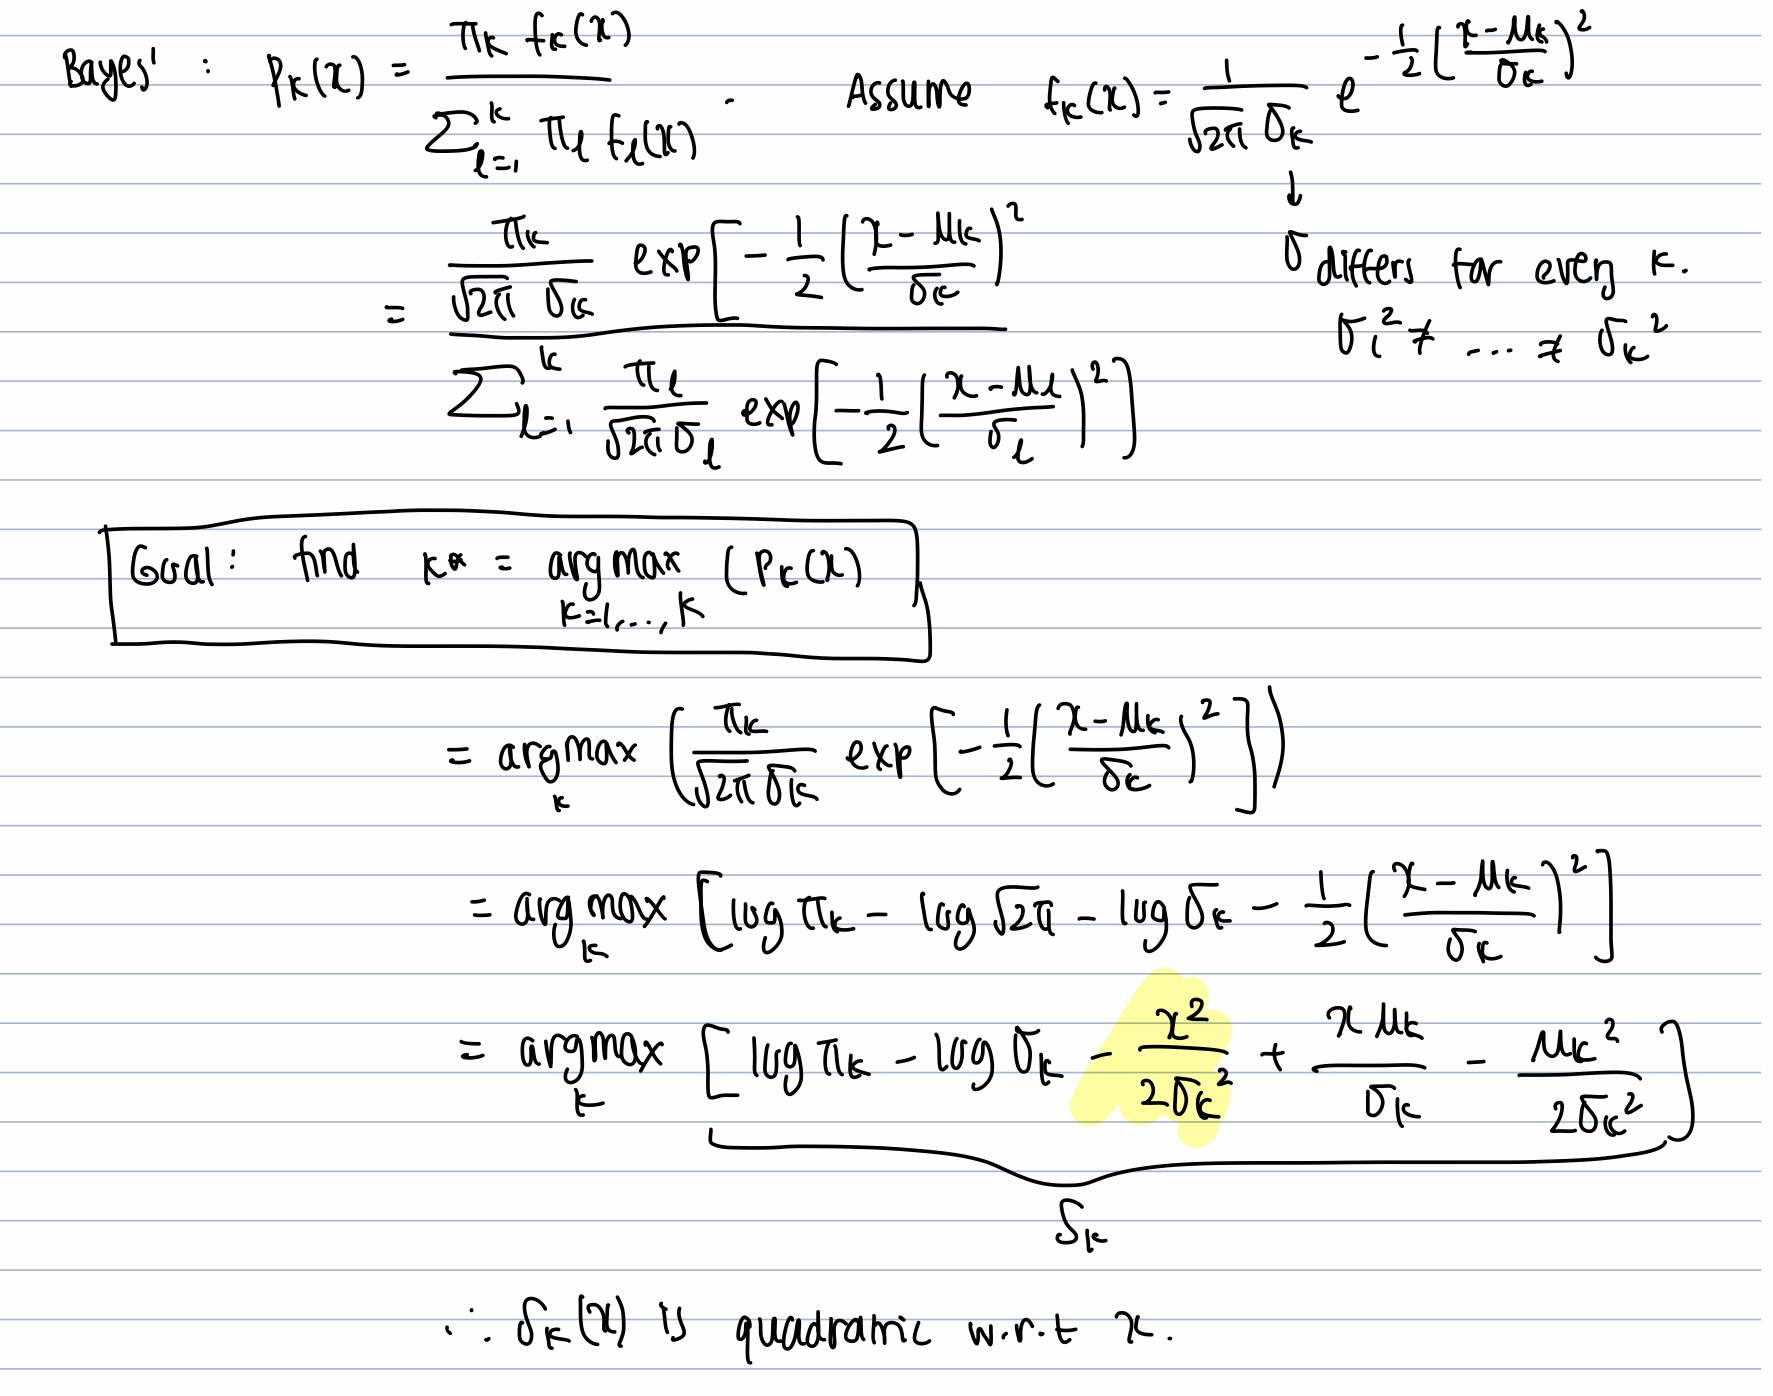 Bayes' : p_k(x) = π_k f_k(x) / Σ_{l=1}^{k} π_l f_l(x) . Assume f_k(x) = 1/(√2π σ_k) e^{-1/2 ((x-μ_k)/σ_k)^2}
↓
= π_k/(√2π σ_k) exp[-1/2 ((x-μ_k)/σ_k)^2 / Σ_{l=1}^{k} π_l/(√2π σ_l) exp[-1/2 ((x-μ_l)/σ_l)^2]
σ differs for every k.
σ_1^2 ≠ ... ≠ σ_k^2
Goal: find k* = argmax_{k=1,...,K} (P_k(x)
= argmax_k (π_k/(√2π σ_k) exp[-1/2 ((x-μ_k)/σ_k)^2])
= argmax_k [log π_k - log √2π - log σ_k - 1/2 ((x-μ_k)/σ_k)^2]
= argmax_k [log π_k - log σ_k - x^2/2σ_k^2 + xμ_k/σ_k - μ_k^2/2σ_k^2]
δ_k
∴ δ_k(x) is quadratic w.r.t x.